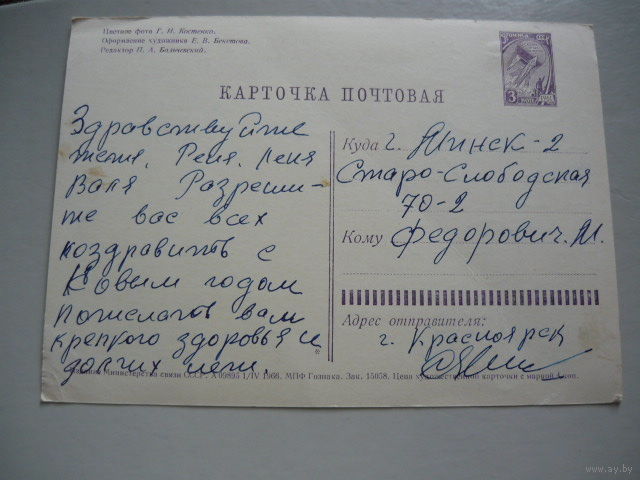 Цветное фото Г. И. Костенко.
Оформление художника Е. В. Бекетова.
Редактор П. А. Бальчевский.
КАРТОЧКА ПОЧТОВАЯ
Здравствуйте
тетя. Реня. Леня
Валя Разреши-
те вас всех
поздравить с
Новым годом
Пожелать вам
крепкого здоровья и
долгих лет.
Куда г. Минск-2
Старо-Слободская
70-2
Кому Федорович. М.
Адрес отправителя:
г. Красноярск
Министерства связи СССР. X 09895 1/IV 1966. МПФ Гознака. Зак. 15058. Цена художественной карточки с маркой 4 коп.
www.ay.by